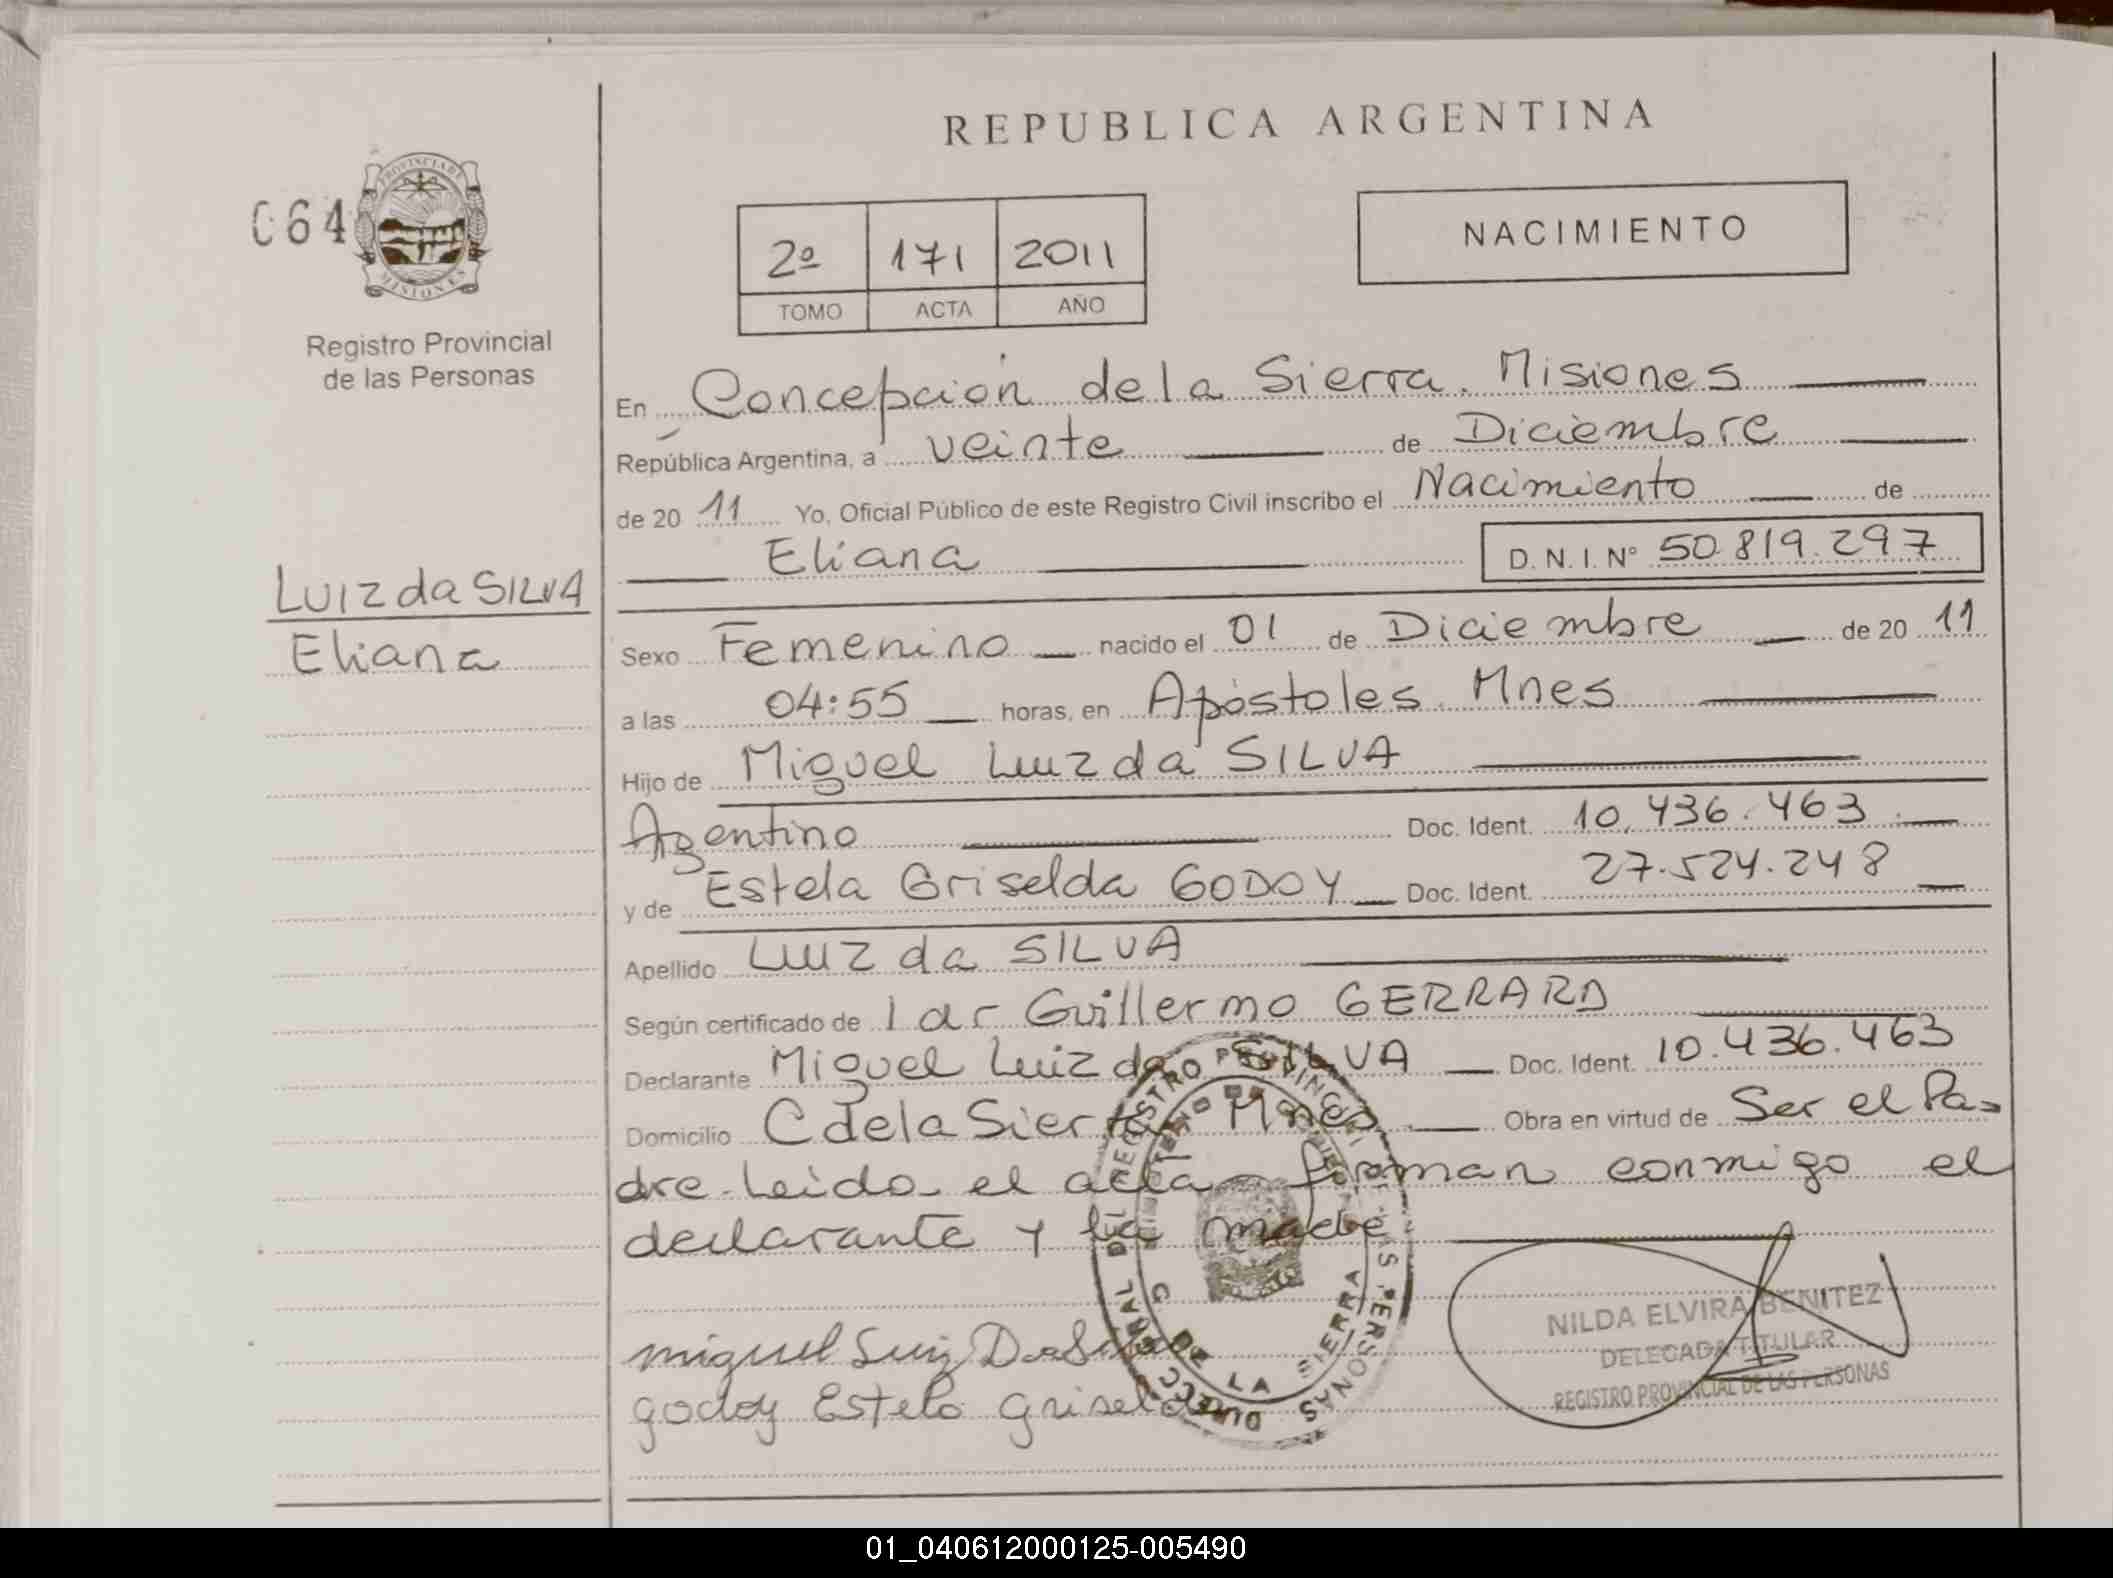 REPUBLICA ARGENTINA
064
PROVINCIA DE
MISIONES
Registro Provincial
de las Personas
2º 171 2011
TOMO ACTA AÑO
NACIMIENTO
LUIZ da SILVA
Eliana
En Concepción de la Sierra. Misiones
República Argentina, a veinte de Diciembre
de 20 11 Yo, Oficial Público de este Registro Civil inscribo el Nacimiento de
Eliana D. N. I. Nº 50.819.297
Sexo Femenino nacido el 01 de Diciembre de 20 11
a las 04:55 horas, en Apóstoles. Mnes
Hijo de Miguel Luiz da SILVA
Argentino Doc. Ident. 10.436.463
y de Estela Griselda GODOY Doc. Ident. 27.524.248
Apellido LUIZ da SILVA
Según certificado de Guillermo GERRARD
Declarante Miguel Luiz da SILVA Doc. Ident. 10.436.463
Domicilio C de la Sierra Mnes Obra en virtud de Ser el Pa-
dre. Leída el acta firman conmigo el
declarante y la madre
miguel Luiz Da Silva
godoy Estela griselda
DE LA SIERRA
NILDA ELVIRA BENITEZ
DELEGADA TITULAR
REGISTRO PROVINCIAL DE LAS PERSONAS
01_040612000125-005490